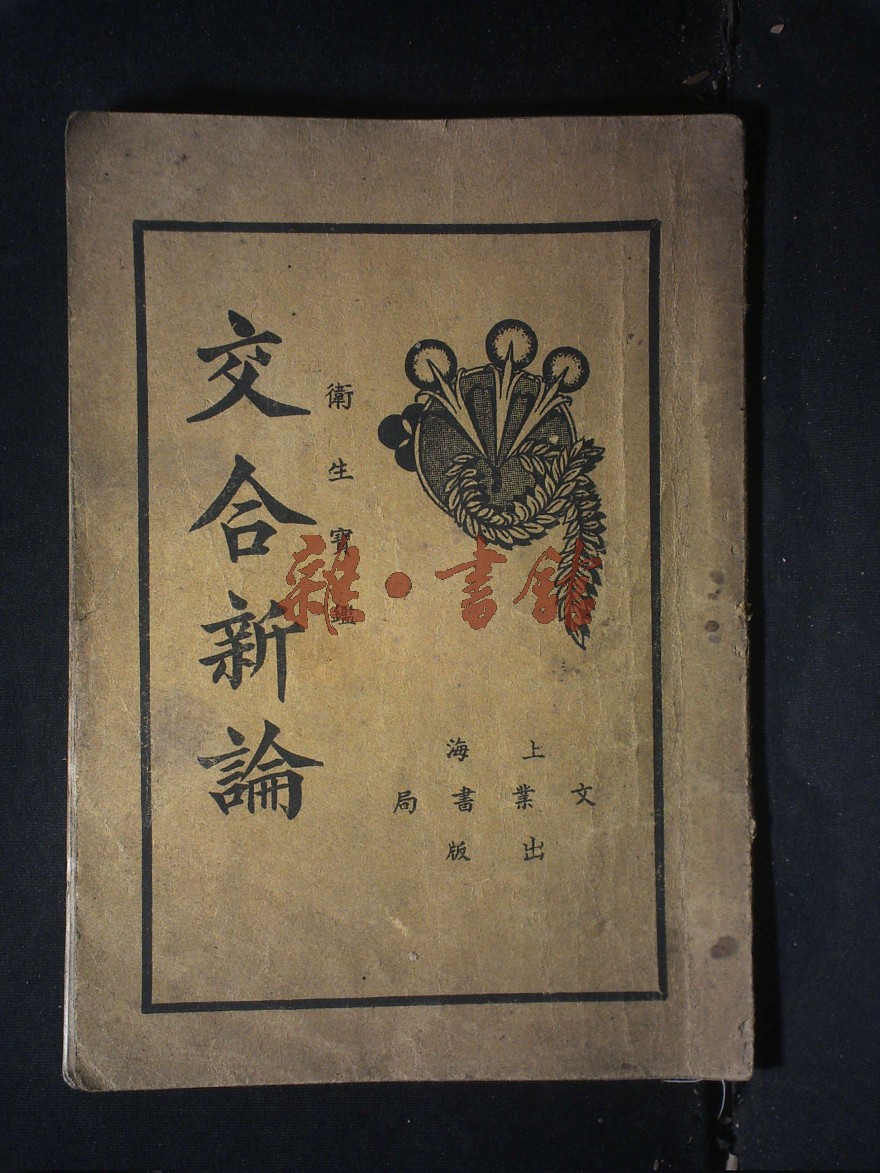 衛生寶鑑
交合新論
上海
文業書局
出版
雜·書館